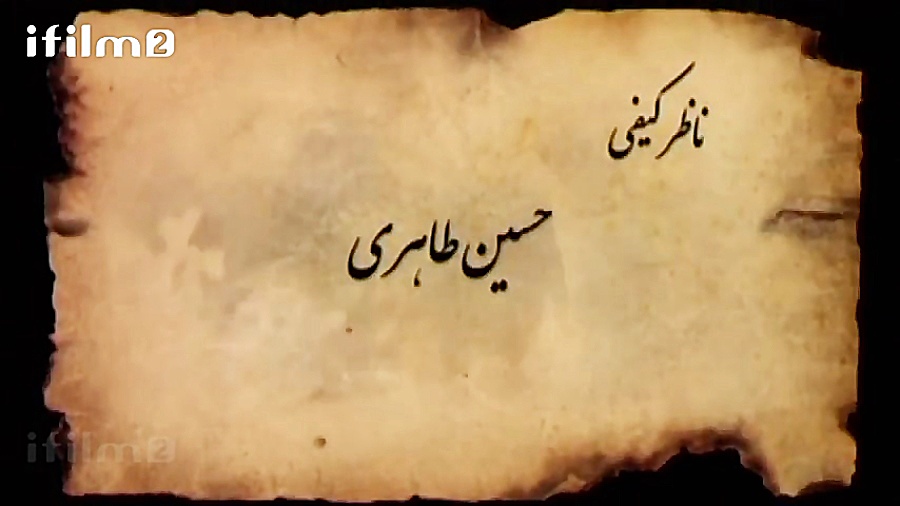 ifilm2
ناظر کیفی
حسین طاهری
ifilm2